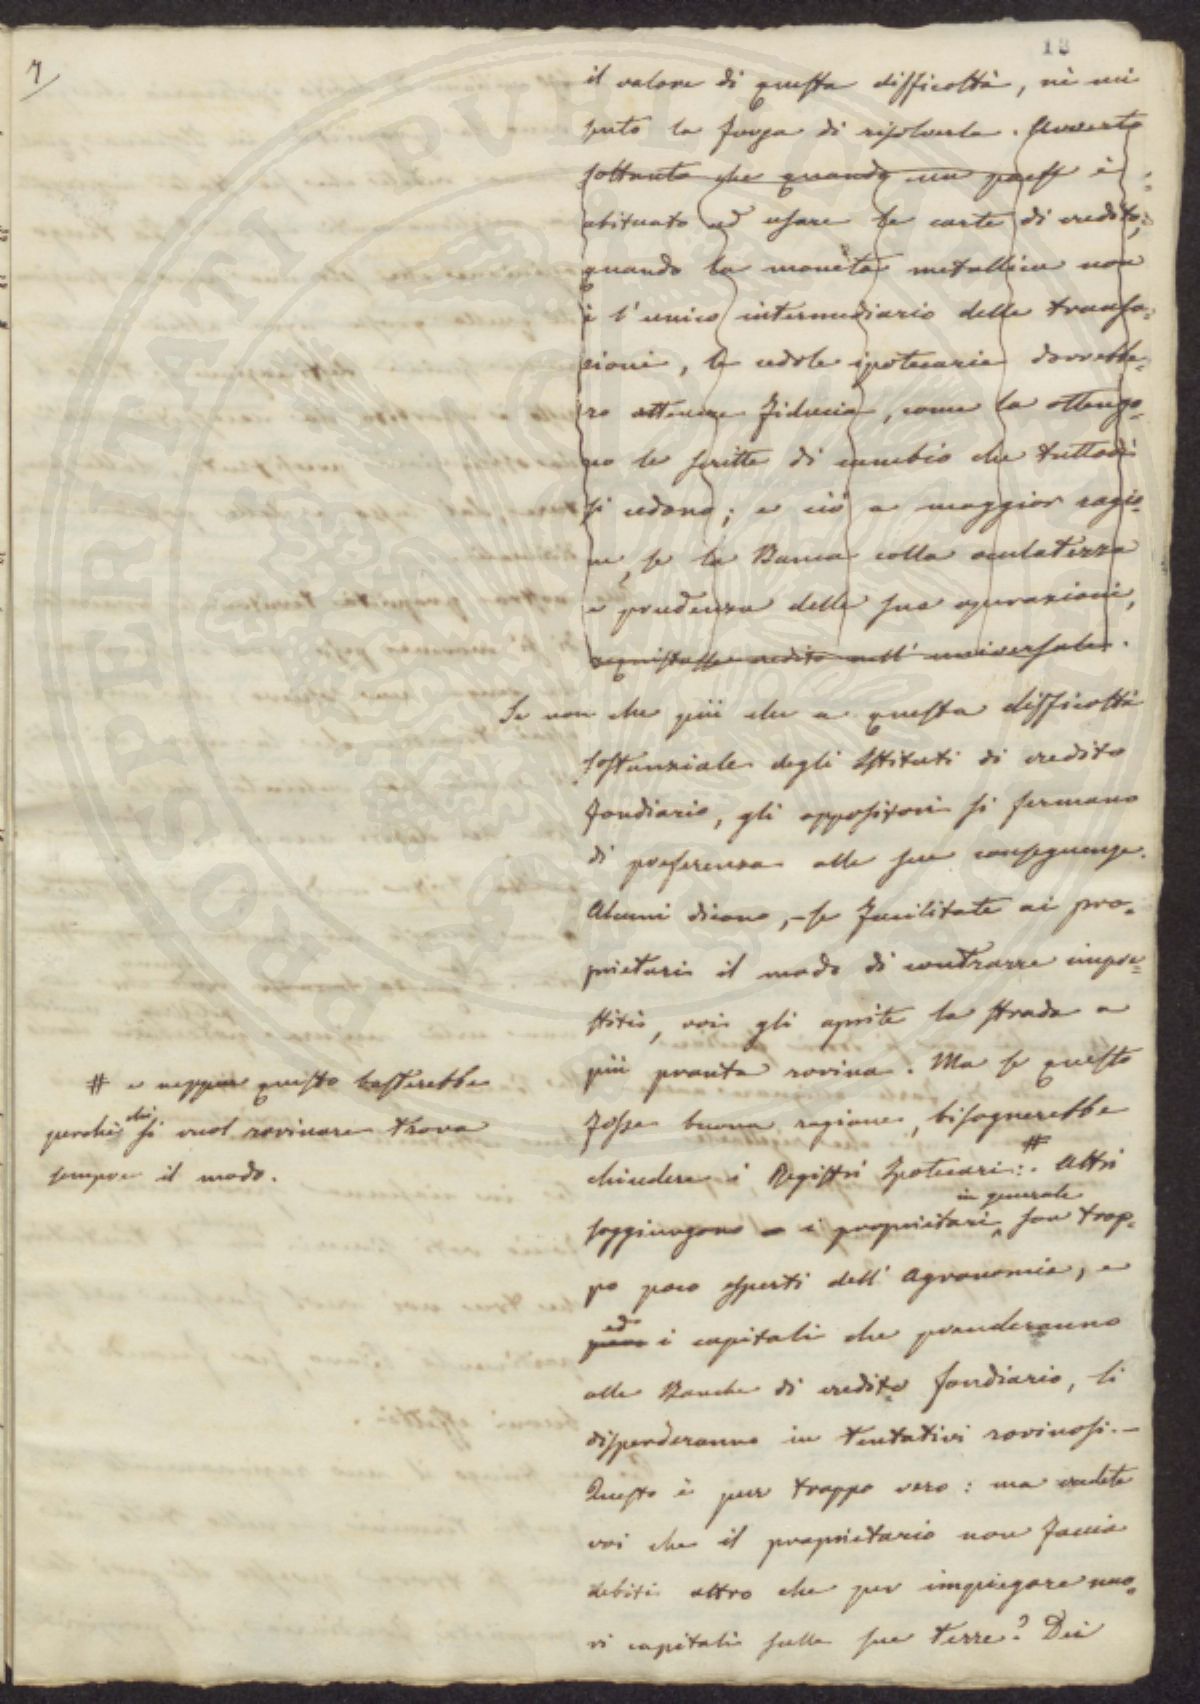 7
12
il valore di questa difficoltà, nè mi
sento la forza di risolverla. Avverto
soltanto che quando un paese è
abituato ad usare le carte di credito,
quando la moneta metallica non
è l'unico intermediario delle transa-
zioni, le cedole ipotecarie dovrebbe-
ro ottenere fiducia, come la ottengo-
no le scritte di cambio che tuttodì
si cedono; e ciò a maggior ragio-
ne, se la Banca colla oculatezza
e prudenza delle sue operazioni,
acquistasse credito nell'universale.
Se non che più che a questa difficoltà
sostanziale degli Istituti di credito
fondiario, gli oppositori si fermano
di preferenza alle sue conseguenze.
Alcuni dicono, - se facilitate ai pro-
prietari il modo di contrarre impre-
stiti, voi gli aprite la strada a
più pronta rovina. Ma se questo
fosse buona ragione, bisognerebbe
chiudere i Registri Ipotecari: # Altri
soggiungono - i proprietari in generale son trop-
po poco esperti dell'Agronomia, e
ed i capitali che prenderanno
alle Banche di credito fondiario, li
disperderanno in tentativi rovinosi. -
Questo è pur troppo vero: ma credete
voi che il proprietario non faccia
debiti altro che per impiegare nuo-
vi capitali sulle sue terre? Dei
# e neppur questo basterebbe
perchè chi si vuol rovinare trova
sempre il modo.
PROSPERITATI PVBLICAE